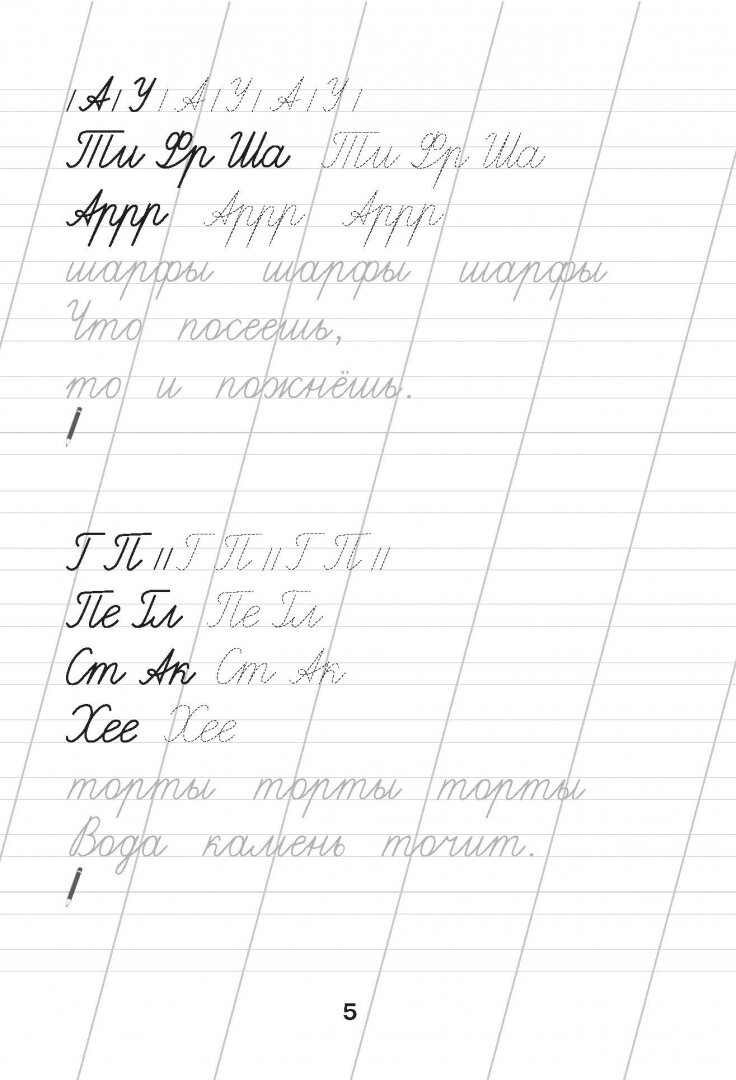 /А/ У/ А/У/ А/У/
Ти Фр Ша Ти Фр Ша
Аррр Аррр Аррр
шарфы шарфы шарфы
Что посеешь,
то и пожнёшь.
Г П // Г П // Г П //
Пе Гл Пе Гл
Ст Ак Ст Ак
Хее Хее
торты торты торты
Вода камень точит.
5